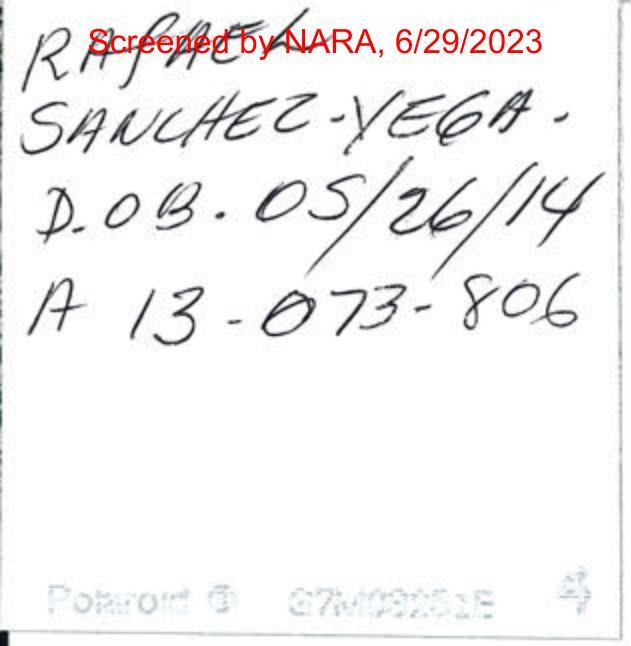 Screened by NARA, 6/29/2023
RAFAEL
SANCHEZ-VEGA.
D.OB. 05/26/14
A 13-073-806
Polaroid ®